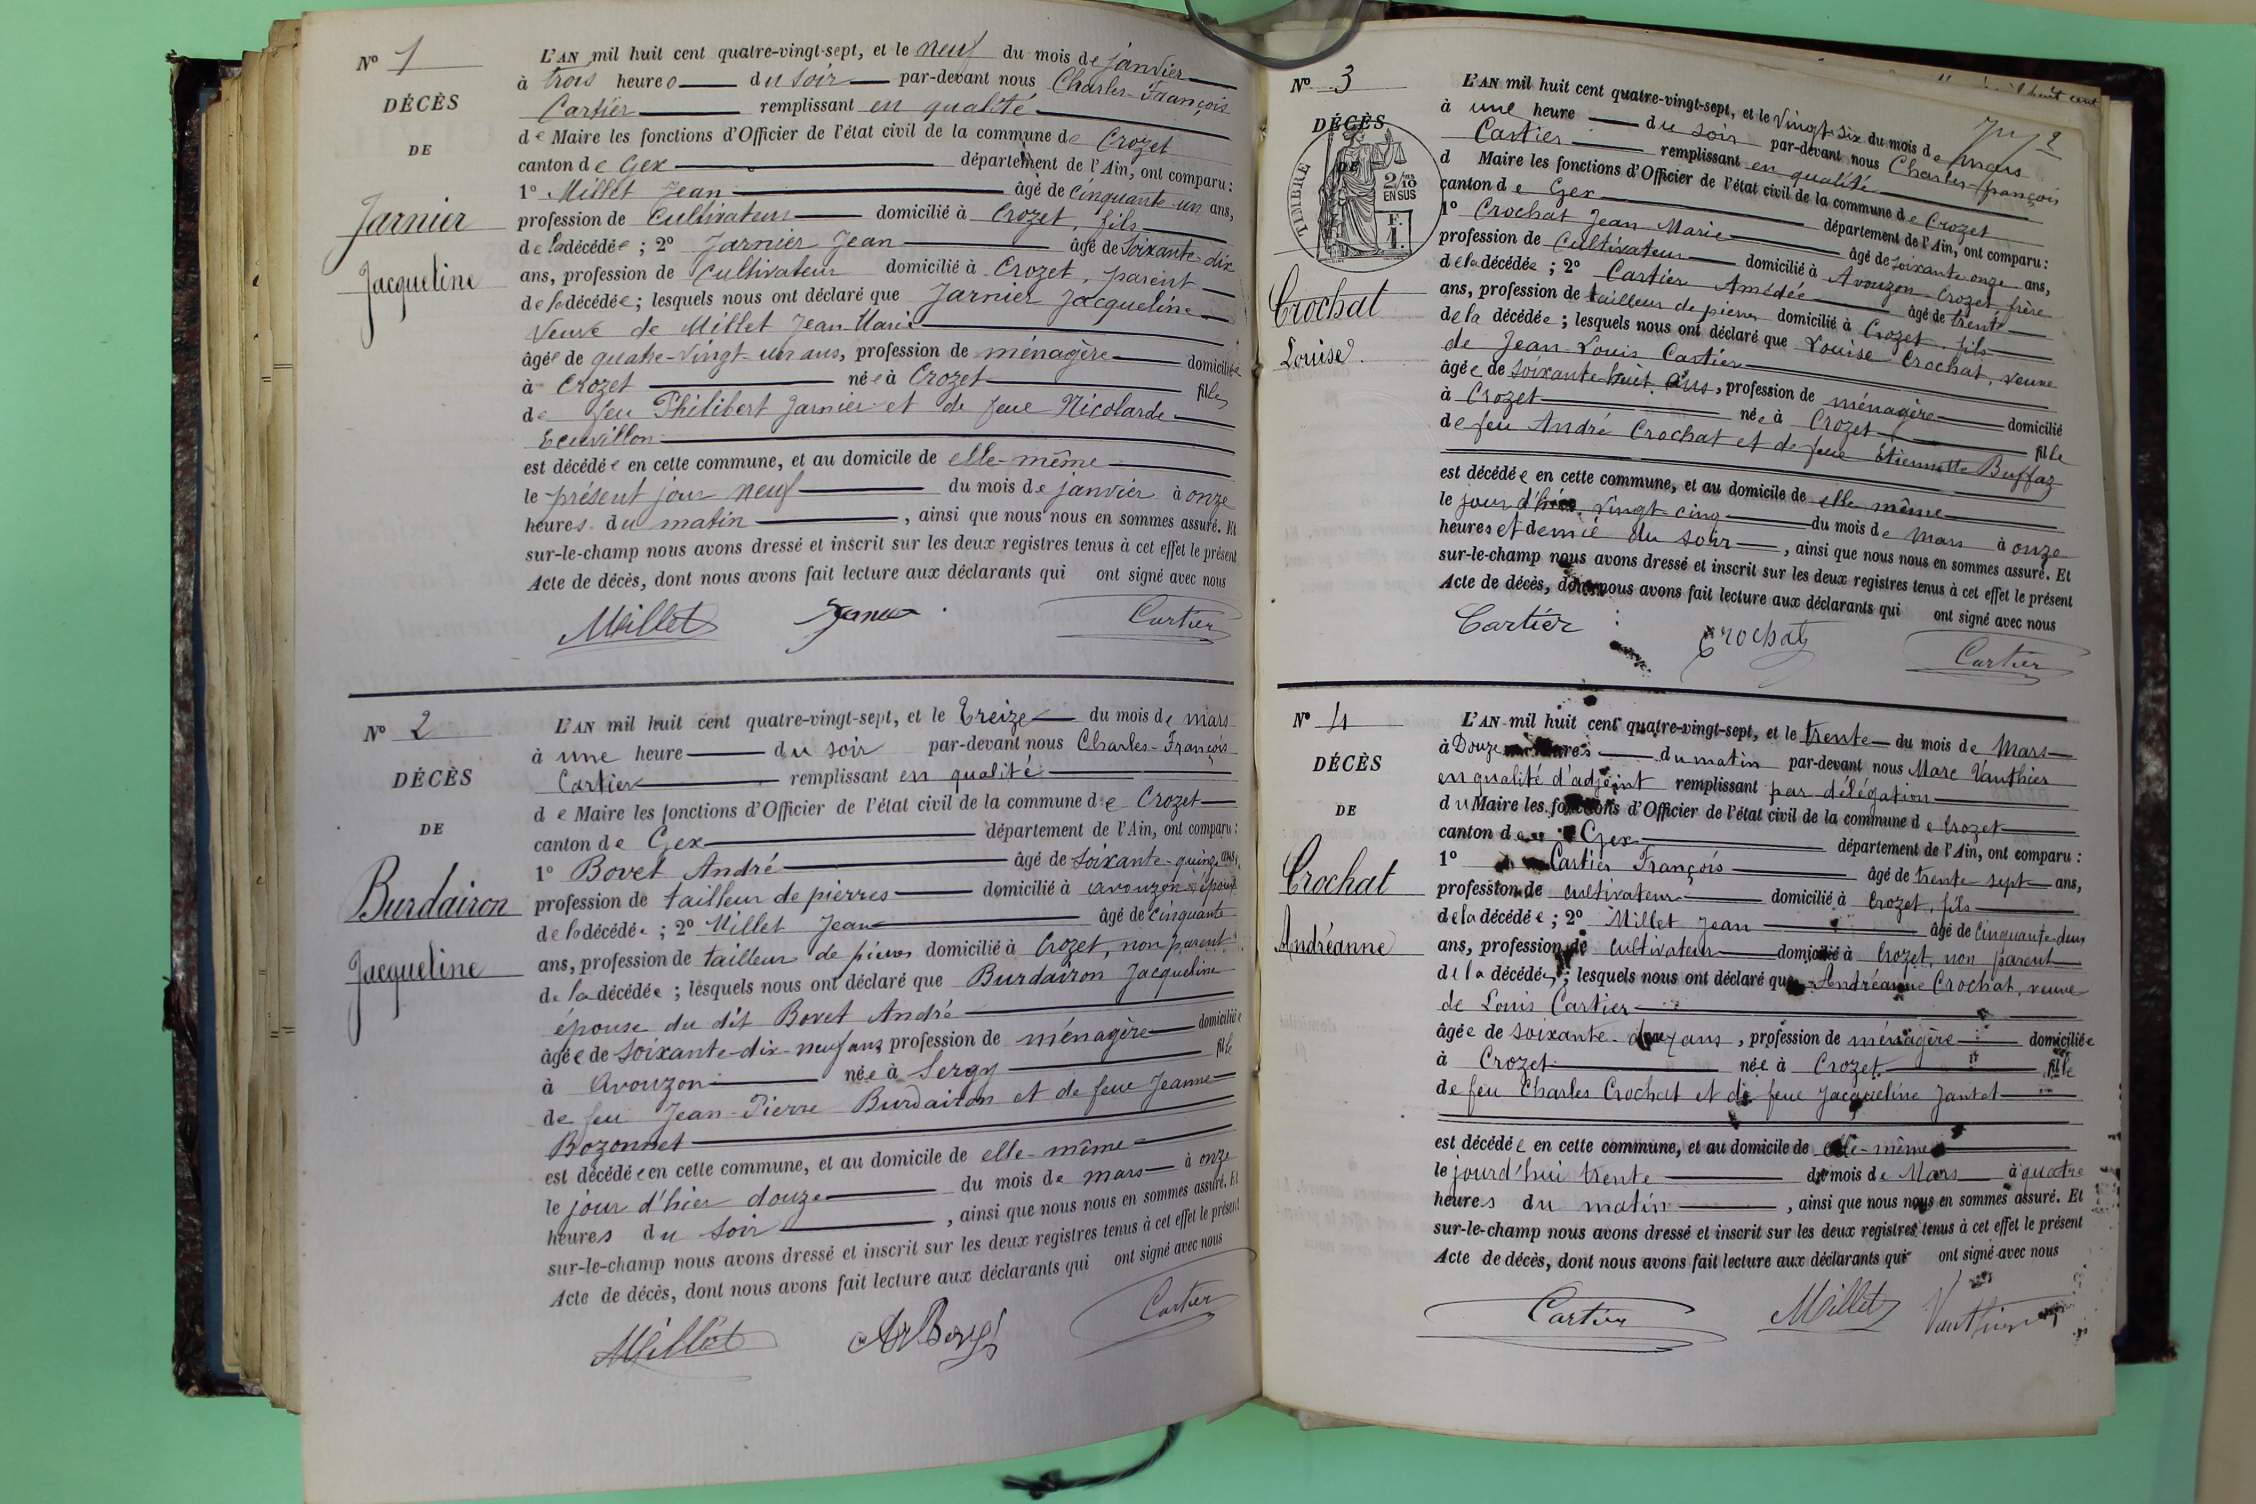 N° 1
DÉCÈS
DE
Jarnier
Jacqueline
L'AN mil huit cent quatre-vingt-sept, et le neuf du mois de janvier
à trois heures du soir par-devant nous Charles-François
Cartier remplissant en qualité
de Maire les fonctions d'Officier de l'état civil de la commune de Crozet
canton de Gex département de l'Ain, ont comparu :
1° Millet Jean âgé de cinquante-un ans,
profession de cultivateur domicilié à Crozet, fils
de la décédée ; 2° Jarnier Jean âgé de soixante-dix
ans, profession de cultivateur domicilié à Crozet, parent
de la décédée ; lesquels nous ont déclaré que Jarnier Jacqueline
veuve de Millet Jean-Marie
âgée de quatre-vingt-un ans, profession de ménagère domiciliée
à Crozet née à Crozet fille
de feu Philibert Jarnier et de feue Nicolarde
Ecuvillon
est décédée en cette commune, et au domicile de elle-même
le présent jour neuf du mois de janvier à onze
heures du matin , ainsi que nous nous en sommes assuré. Et
sur-le-champ nous avons dressé et inscrit sur les deux registres tenus à cet effet le présent
Acte de décès, dont nous avons fait lecture aux déclarants qui ont signé avec nous
Millet Cartier
N° 2
DÉCÈS
DE
Burdairon
Jacqueline
L'AN mil huit cent quatre-vingt-sept, et le treize du mois de mars
à une heure du soir par-devant nous Charles-François
Cartier remplissant en qualité
de Maire les fonctions d'Officier de l'état civil de la commune de Crozet
canton de Gex département de l'Ain, ont comparu :
1° Bovet André âgé de soixante-quinze ans,
profession de tailleur de pierres domicilié à Avouzon époux
de la décédée ; 2° Millet Jean âgé de cinquante
ans, profession de tailleur de pierres domicilié à Crozet, non parent
de la décédée ; lesquels nous ont déclaré que Burdairon Jacqueline
épouse du dit Bovet André
âgée de soixante-dix-neuf ans profession de ménagère domiciliée
à Avouzon née à Sergy fille
de feu Jean-Pierre Burdairon et de feue Jeanne
Bozonnet
est décédée en cette commune, et au domicile de elle-même
le jour d'hier douze du mois de mars à onze
heures du soir , ainsi que nous nous en sommes assuré. Et
sur-le-champ nous avons dressé et inscrit sur les deux registres tenus à cet effet le présent
Acte de décès, dont nous avons fait lecture aux déclarants qui ont signé avec nous
Millet Cartier
N° 3
DÉCÈS
DE
TIMBRE
2/10
EN SUS
F.
1.
Crochat
Louise
L'AN mil huit cent quatre-vingt-sept, et le vingt-six du mois de mars
à une heure du soir par-devant nous Charles-François
Cartier remplissant en qualité
d Maire les fonctions d'Officier de l'état civil de la commune de Crozet
canton de Gex département de l'Ain, ont comparu :
1° Crochat Jean Marie âgé de soixante-onze ans,
profession de cultivateur domicilié à Avouzon-Crozet, frère
de la décédée ; 2° Cartier Amédée âgé de trente
ans, profession de tailleur de pierres domicilié à Crozet, fils
de la décédée ; lesquels nous ont déclaré que Louise Crochat, veuve
de Jean-Louis Cartier
âgée de soixante huit ans, profession de ménagère domicilié
à Crozet née à Crozet fille
de feu André Crochat et de feue Etiennette Buffaz
est décédée en cette commune, et au domicile de elle même
le jour d'hier vingt cinq du mois de mars à onze
heures et demie du soir , ainsi que nous nous en sommes assuré. Et
sur-le-champ nous avons dressé et inscrit sur les deux registres tenus à cet effet le présent
Acte de décès, dont nous avons fait lecture aux déclarants qui ont signé avec nous
Cartier Crochat Cartier
N° 4
DÉCÈS
DE
Crochat
Andréanne
L'AN mil huit cent quatre-vingt-sept, et le trente du mois de Mars
à Douze heures du matin par-devant nous Marc Vauthier
en qualité d'adjoint remplissant par délégation
du Maire les fonctions d'Officier de l'état civil de la commune de Crozet
canton de Gex département de l'Ain, ont comparu :
1° Cartier François âgé de trente sept ans,
profession de cultivateur domicilié à Crozet, fils
de la décédée ; 2° Millet Jean âgé de cinquante-deux
ans, profession de cultivateur domicilié à Crozet, non parent
de la décédée ; lesquels nous ont déclaré que Andréanne Crochat, veuve
de Louis Cartier
âgée de soixante-deux ans, profession de ménagère domiciliée
à Crozet née à Crozet fille
de feu Charles Crochat et de feue Jacqueline Jantet
est décédée en cette commune, et au domicile de elle-même
le jourd'hui trente du mois de Mars à quatre
heures du matin , ainsi que nous nous en sommes assuré. Et
sur-le-champ nous avons dressé et inscrit sur les deux registres tenus à cet effet le présent
Acte de décès, dont nous avons fait lecture aux déclarants qui ont signé avec nous
Cartier Millet Vauthier